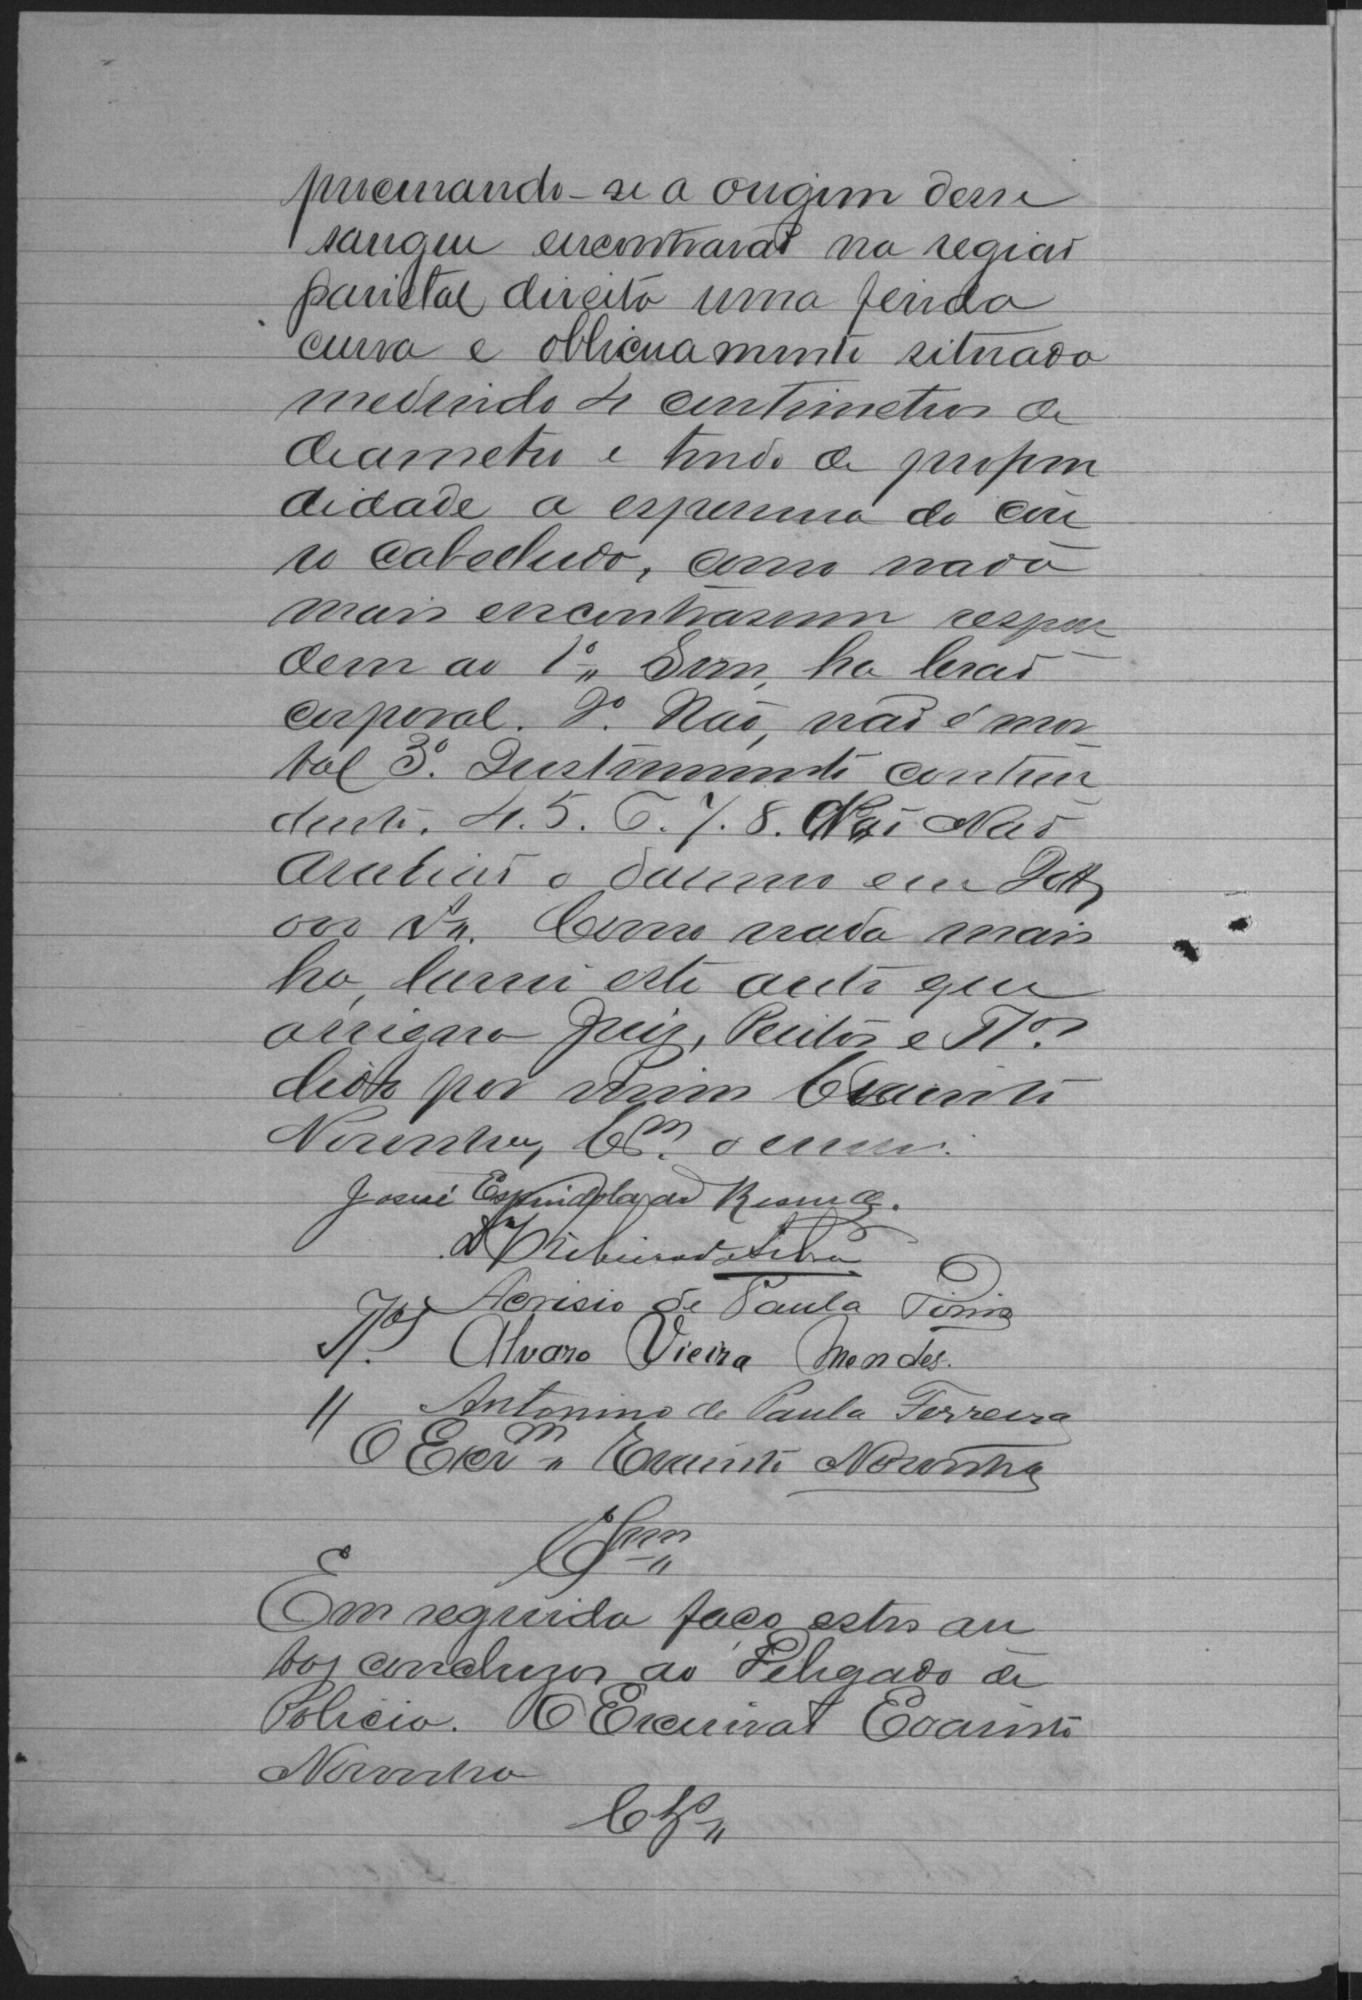 procurando-se a origem desse
sangue encontrarão na região
parietal direita uma ferida
curva e obliquamente situada
medindo 4 centimetros de
diametro e tendo de profun
didade a espessura do cou
ro cabelludo, como nada
mais encontrassem respon
dem ao 1º Sim, ha lesão
corporal. 2º. Não, não é mor
tal 3º. Instrumento contun
dente. 4. 5. 6. 7. 8. Não Não
avalião o damno em
Como nada mais
ha, lavrei este auto que
assigna Juiz, Peritos e Tªs
lido por mim Evaristo
Noronha, Em. o escrevi.
Josué Espindola
Ribeiro da Silva
Acrisio de Paula
Tas Alvaro Vieira Mendes.
" Antonino de Paula Ferreira
O Escrm Evaristo Noronha
Em seguida faço estes au
tos conclusos ao Delegado de
Policia. O Escrivão Evaristo
Noronha
Clzo